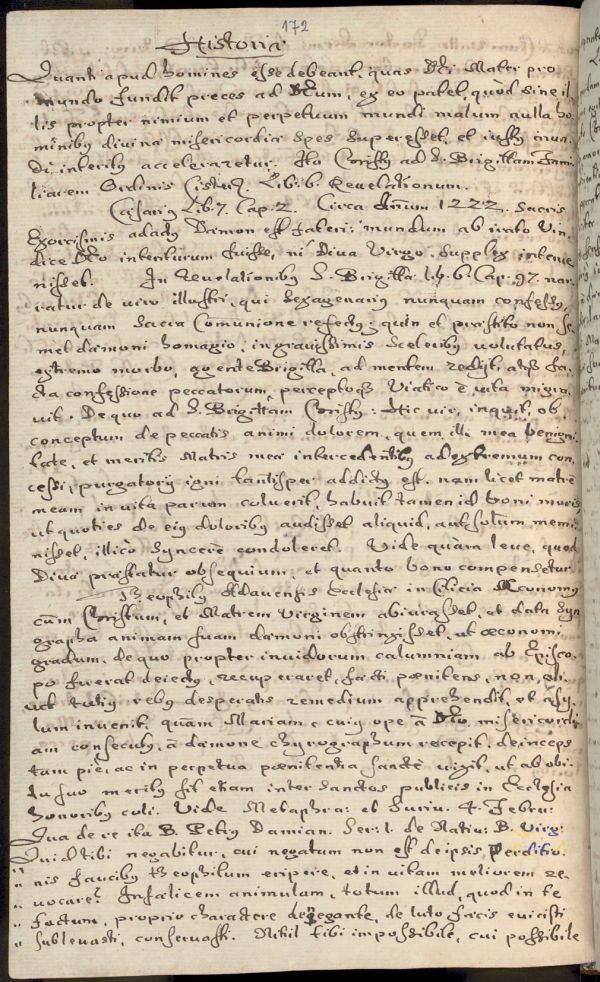 172
Historiæ
Quanti apud homines esse debeant, quas Dei Mater pro
mundo fundit preces ad Deum, ex eo patet, quod sine il-
lis propter nimium et perpetuum mundi malum, nulla ho-
minibus divinæ misericordiæ spes superesset, et iusta mun-
di interitus acceleraretur. Ita Christus ad S. Brigittam
liarem Ordinis Cisterc. Lib. 6. Revelationum.
Cæsarius Lib. 7. Cap. 2. Circa Annum 1222. Sacris
Exorcismis adactus Dæmon est fateri: mundum ab irato Vin-
dice Deo interiturum fuisse, ni Diva Virgo supplex interve-
nisset. In Revelationibus S. Brigittæ lib. 6. Cap. 97. nar-
ratur de viro illustri, qui sexagenarius nunquam confessus,
nunquam Sacra Comunione refectus; quin et præstito non se-
mel dæmoni homagio, in gravissimis sceleribus volutatus,
extremo morbo, agente Brigitta, ad mentem redijt, atque fa-
cta confessione peccatorum, perceptoque Viatico è vita migra-
vit. De quo ad S. Brigittam Christus: Hic vir, inquit, ob
conceptum de peccatis animi dolorem, quem illi mea benigni-
tate, et meritis Matris meæ intercedentibus ad extremum con-
cessi, purgatorij igni tantisper addictus est. nam licet matrem
meam in vita parum coluerit, habuit tamen id boni moris
ut quoties de eius doloribus audisset aliquid, aut solum memi-
nisset, illicò syncerè condoleret. Vide quàm leve, quod
Divæ præstatur obsequium, et quanto bono compensetur.
Theophilus Adavensis Ecclesiæ in Cilicia Æconomus
cùm Christum, et Matrem Virginem abiurasset, et data syn-
grapha animam suam dæmoni obstrinxisset, ut œconomi
gradum, de quo propter invidorum calumniam ab Episco-
po fuerat deiectus, recuperaret, facti pœnitens, non
aut tutius rebus desperatis remedium apprehendit, et asy-
lum invenit, quàm Mariam, cuius ope à Deo misericordi-
am consecutus, à dæmone chyrographum recepit, deinceps
tam piè, ac in perpetua pœnitentia sanctè vixit, ut ab obi-
tu suo meritus sit etiam inter sanctos publicis in Ecclesia
honoribus coli. Vide Metaphra: et Suriu. 4. Febru:
Qua de re ita B. Petrus Damian. Ser. 1. de Nativ: B. Virg:
Quid tibi negabitur, cui negatum non est de ipsis Perditio-
" nis faucibus theophilum eripere, et in vitam meliorem re-
" vocare? Infælicem animulam, totum illud, quod in te
" factum, proprio charactere denegante, de luto fæcis evicisti
" sublevasti, conservasti. Nihil tibi impossibile, cui possibile